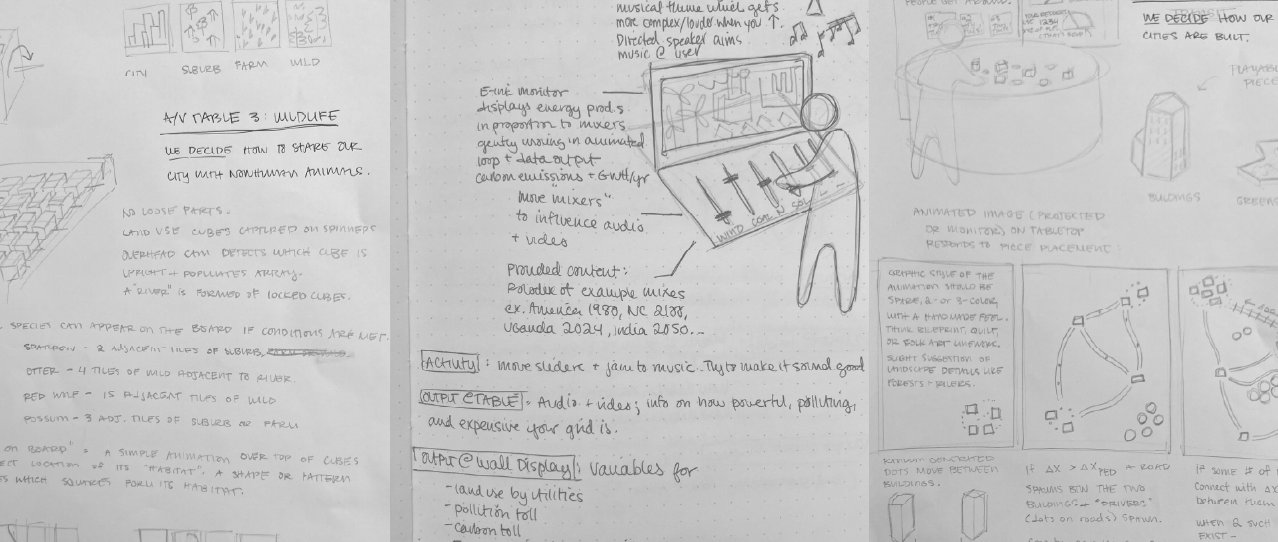 CITY
SUBURB
FARM
WILD
A/V TABLE 3: WILDLIFE
WE DECIDE HOW TO SHARE OUR
CITY WITH NONHUMAN ANIMALS.
NO LOOSE PARTS.
LAND USE CUBES CAPTURED ON SPINNERS
OVERHEAD CAM DETECTS WHICH CUBE IS
UPRIGHT + POPULATES ARRAY.
A "RIVER" IS FORMED OF LOCKED CUBES.
SPECIES CAN APPEAR ON THE BOARD IF CONDITIONS ARE MET.
SPARROW - 2 ADJACENT TILES OF SUBURB,
OTTER - 4 TILES OF WILD ADJACENT TO RIVER
RED WOLF - 15 ADJACENT TILES OF WILD
POSSUM - 3 ADJ. TILES OF SUBURB OR FARM
ON BOARD" = A SIMPLE ANIMATION OVER TOP OF CUBES
LOCATION OF ITS "HABITAT", A SHAPE OR PATTERN
WHICH SQUARES FORM ITS HABITAT.
musical theme which gets
more complex/louder when you ↑.
Directed speaker aims
music @ user
E-ink monitor
displays energy prod.s
in proportion to mixers
gently moving in animated
loop + data output
carbon emissions + GWH/yr
"more mixers"
to influence audio
+ video
WIND COAL N
Provided content:
Rolodex of example mixes
ex. America 1980, NC 2100,
Uganda 2024, India 2050...
Activity: move sliders + jam to music. Try to make it sound good
OUTPUT @ TABLE: Audio + video; info on how powerful, polluting,
and expensive your grid is.
OUTPUT @ Wall Display: Variables for
- land use by utilities
- pollution toll
- carbon toll
PEOPLE GET AROUND.
TRANSIT
WE DECIDE HOW OUR
CITIES ARE BUILT.
PIECE
BUILDINGS
GREEN
ANIMATED IMAGE (PROJECTED
OR MONITOR) ON TABLETOP
RESPONDS TO PIECE PLACEMENT:
GRAPHIC STYLE OF THE
ANIMATION SHOULD BE
SPARE, 2- OR 3-COLOR,
WITH A HAND MADE FEEL.
THINK BLUEPRINT, QUILT,
OR FOLK ART LINEWORK.
SLIGHT SUGGESTION OF
LANDSCAPE DETAILS LIKE
FORESTS + RIVERS.
DOTS MOVE BETWEEN
BUILDINGS.
IF ΔX > ΔX PED A ROAD
SPAWNS BTWN THE TWO
BUILDINGS + "DRIVERS"
(dots on roads) SPAWN.
IF SOME # OF
Connect with ΔX
between them
WHEN 2 SUCH
EXIST -